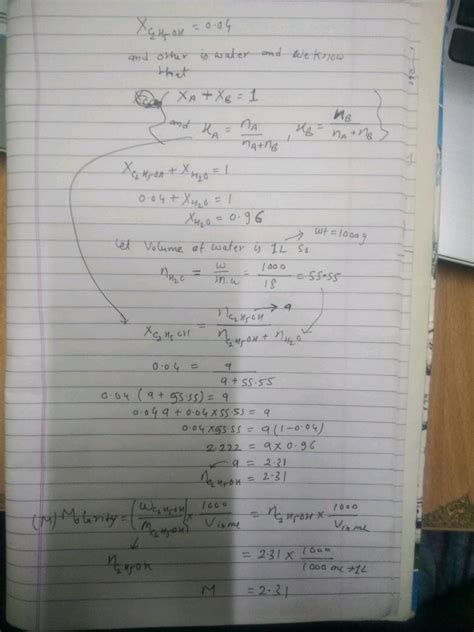 X_C2H5OH = 0.04
and other is water and we know
that
X_A + X_B = 1
and x_A = n_A / (n_A+n_B) , x_B = n_B / (n_A+n_B)
X_C2H5OH + X_H2O = 1
0.04 + X_H2O = 1
X_H2O = 0.96
wt = 1000g
Let Volume of water is 1L So
n_H2O = w / m.w = 1000 / 18 = 55.55
X_C2H5OH = n_C2H5OH → a / (n_C2H5OH + n_H2O)
0.04 = a / (a + 55.55)
0.04 (a + 55.55) = a
0.04 a + 0.04 x 55.55 = a
0.04 x 55.55 = a (1 - 0.04)
2.222 = a x 0.96
a = 2.31
n_C2H5OH = 2.31
(M) Molarity = (W_C2H5OH / M_C2H5OH) x 1000 / V in ml = n_C2H5OH x 1000 / V in ml
n_C2H5OH
= 2.31 x 1000 / 1000 ml → 1L
M = 2.31